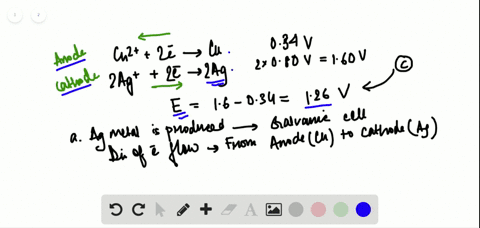 Anode Cu²⁺ + 2ē → Cu. 0.34 V
Cathode 2Ag⁺ + 2ē → 2Ag. 2x 0.80 V = 1.60 V
E = 1.6 - 0.34 = 1.26 V c
a. Ag metal is produced → Galvanic cell
Dirⁿ of ē flow → From Anode (Cu) to Cathode (Ag)
A